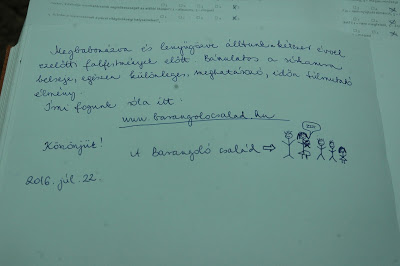 Megbabonázva és lenyűgözve álltunk kétezer évvel
ezelőtti falfestmények előtt. Bámulatos a sírkamra
belseje, egészen különleges, meghatározó, időn túlmutató
élmény.
Írni fogunk róla itt:
www.barangolocsalad.hu
Köszönjük!
A Barangoló család ⇨
2016. júl. 22.